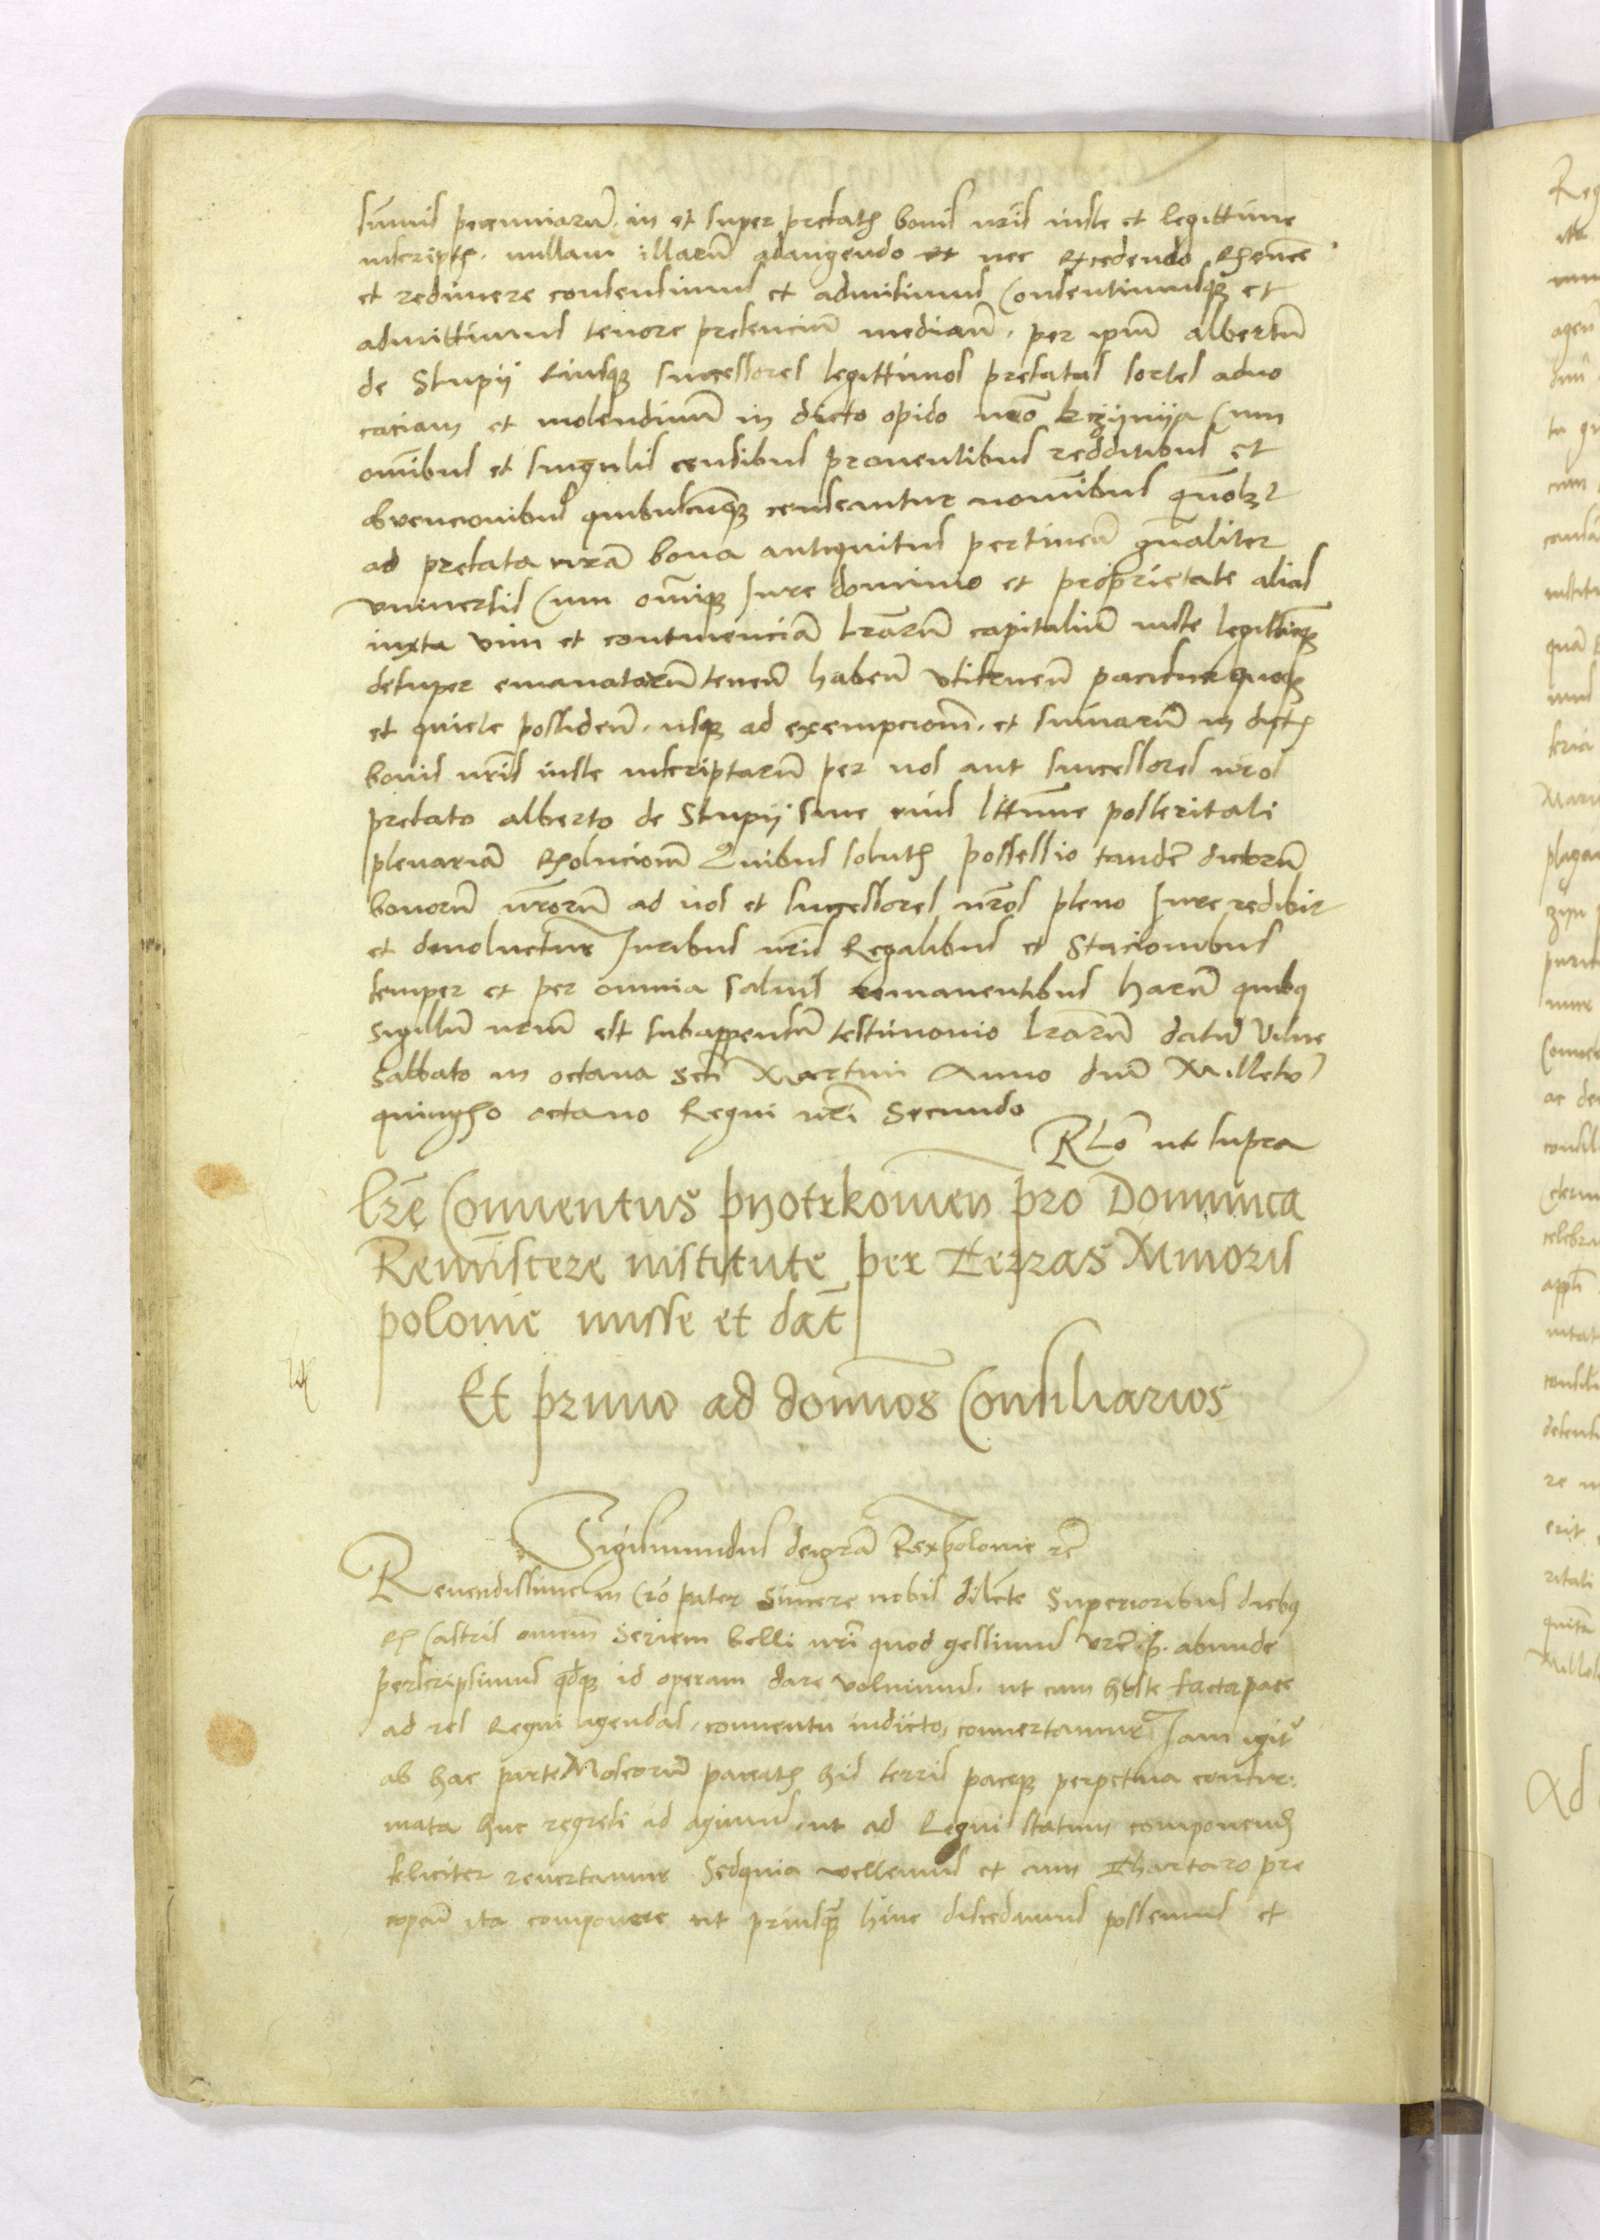 summis pecuniarũ. in et super prefatꝭ bonis nrĩs iuste et legittime
inscriptꝭ. nullam illarũ adaugendo et nec excedendo
et redimere consensimus et admisimus Consentimusqꝫ et
admittimus tenore presenciũ mediañ. per ipm̃ albertũ
de Stupij eiusqꝫ successores legittimos prefatas sortes advo
caciam et molendinũ in dicto opido nr̃o kczijnija Cum
omĩbus et singulis censibus proventibus redditibus et
obvencionibus quibuscũqꝫ censeantur nomĩbus
ad prefata nr̃a bona antiquitus pertineñ gñaliter
vniversis Cum omĩqꝫ Iure dominio et proprietate alias
iuxta vim et continenciã lr̃arũ capitaliũ iuste legittimeqꝫ
desuper emanatarũ teneñ habeñ vtifrueñ pacifice
et quiete possideñ. usqꝫ ad exempcionẽ. et sum̃arũ in dictꝭ
bonis nrĩs iuste inscriptarũ per nos aut successores nr̃os
prefato alberto de Stupij sive eius ltt̃ime posteritati
plenariã Exolucionẽ Quibus solutꝭ possessio tandẽ dictorũ
bonorũ nr̃orũ ad nos et successores nr̃os pleno Iure redibit
et devoluetur Iuribus nrĩs Regalibus et Stacionibus
semper et per omnia salvis remanentibus harũ quibꝯ
sigillũ nrũm est subappensũ testimonio lr̃arũ datũ Vilne
Sabbato in octava scti Martini Anno dnĩ Millesĩo
quingẽo octavo Regni nrĩ Secundo
Rl̃o ut supra
lr̃ę Conventus pijotrkovien̄ pro Dominica
Reminiscere institute per Terras Minoris
polonie misse et dat̄
Et primo ad dominos Consiliarios
Sigismundus dei gr̃a Rex polonie rc̃
Reverendissime in Cr̃o pater Sincere nobis dilecte Superioribus diebꝯ
ex Castris omnem Seriem belli nrĩ quod gessimus vr̃e p. abunde
perscripsimus qdqꝫ id operam dare volumus. ut cum hoste facta pace
ad res Regni agendas. conventu indicto, convertamur Iam igit᷑
ab hac parte Moscorũ pacatꝭ his terris paceqꝫ perpetua confir:
mata huc regredi id agimus. ut ad Regni statum componendꝭ
feliciter revertamur Sed quia vellemus et cum Thartaro pre
copeñ ita componere ut priusqꝫ hinc discedamus possemus et